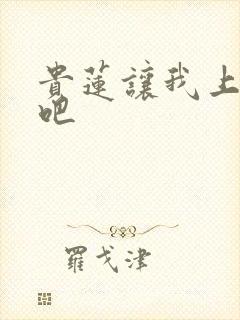 貴蓮讓我上
吧
羅戈津